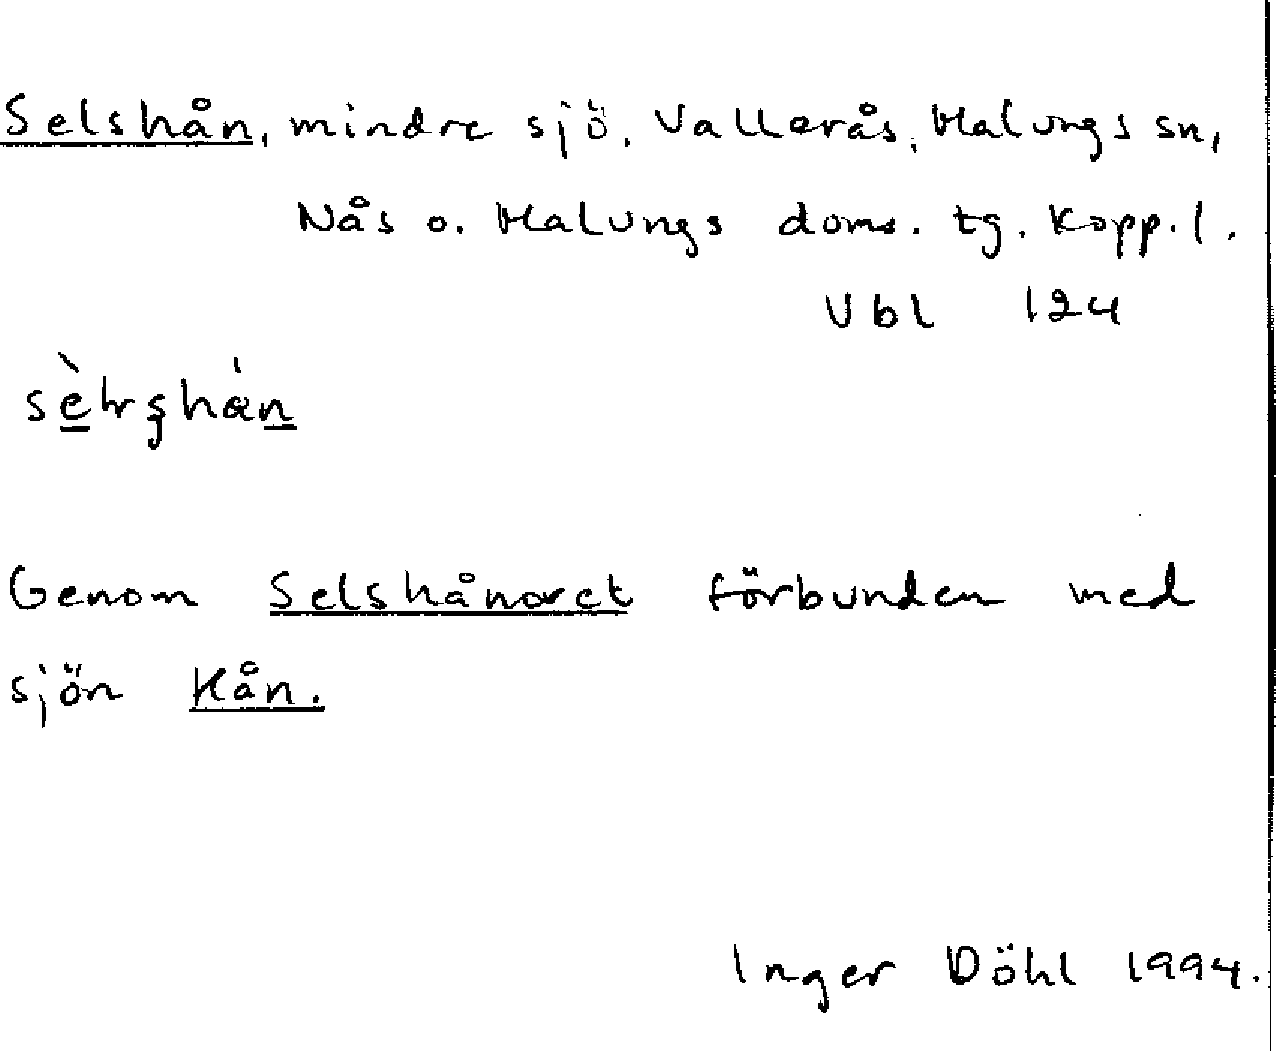 Selshån, mindre sjö, Vallerås, Malungs sn,
Nås o. Malungs doms. tg. Kopp. l.
Ubl 124
Genom Selshånoret förbunden med
sjön Hån.
Inger Döhl 1994.